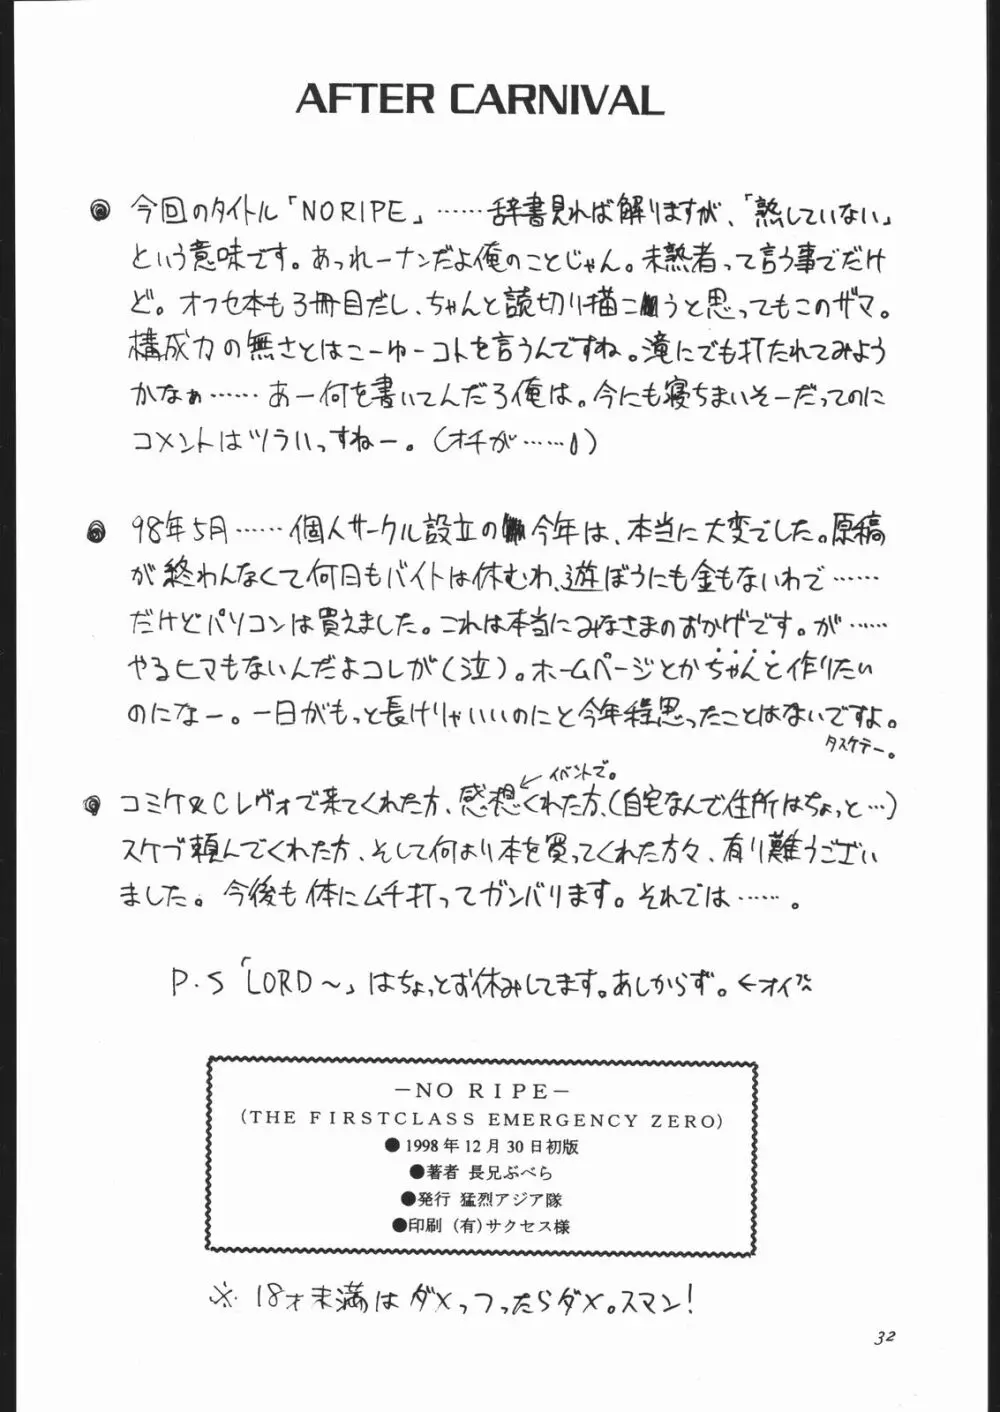 AFTER CARNIVAL
◎ 今回のタイトル「NORIPE」……辞書見れば解りますが、「熟していない」
という意味です。あっれーナンだよ俺のことじゃん。未熟者って言う事でだけ
ど。オフセ本も3冊目だし、ちゃんと読切り描こうと思ってもこのザマ。
構成力の無さとはこーゆーコトを言うんですね。滝にでも打たれてみよう
かなぁ……あー何を書いてんだろ俺は。今にも寝ちまいそーだってのに
コメントはツラいっすねー。(オチが……)
◎ 98年5月……個人サークル設立の今年は、本当に大変でした。原稿
が終わんなくて何日もバイトは休むわ、遊ぼうにも金もないわで……
だけどパソコンは買えました。これは本当にみなさまのおかげです。が……
やるヒマもないんだよコレが(泣)。ホームページとかちゃんと作りたい
のになー。一日がもっと長けりゃいいのにと今年程思ったことはないですよ。
タスケテー。
イベントで。
◎ コミケ&Cレヴォで来てくれた方、感想くれた方、(自宅なんで住所はちょっと…)
スケブ頼んでくれた方、そして何より本を買ってくれた方々、有り難うござい
ました。今後も体にムチ打ってガンバります。それでは……。
P.S「LORD~」はちょっとお休みしてます。あしからず。←オイ
－NO RIPE－
(THE FIRSTCLASS EMERGENCY ZERO)
●1998年12月30日初版
●著者 長兄ぶべら
●発行 猛烈アジア隊
●印刷 (有)サクセス様
※18才未満はダメっつったらダメ。スマン!
32